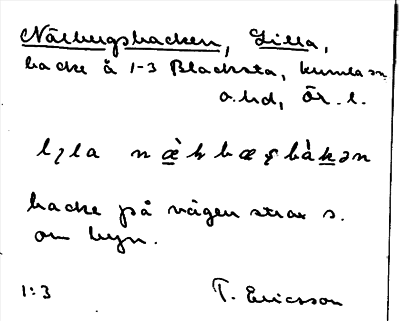 Nålbergsbacken, Lilla,
backe å 1-3 Blacksta, Kumla sn
o. hd, Ör. l.
backe på vägen strax s.
om byn.
1:3 T. Ericsson